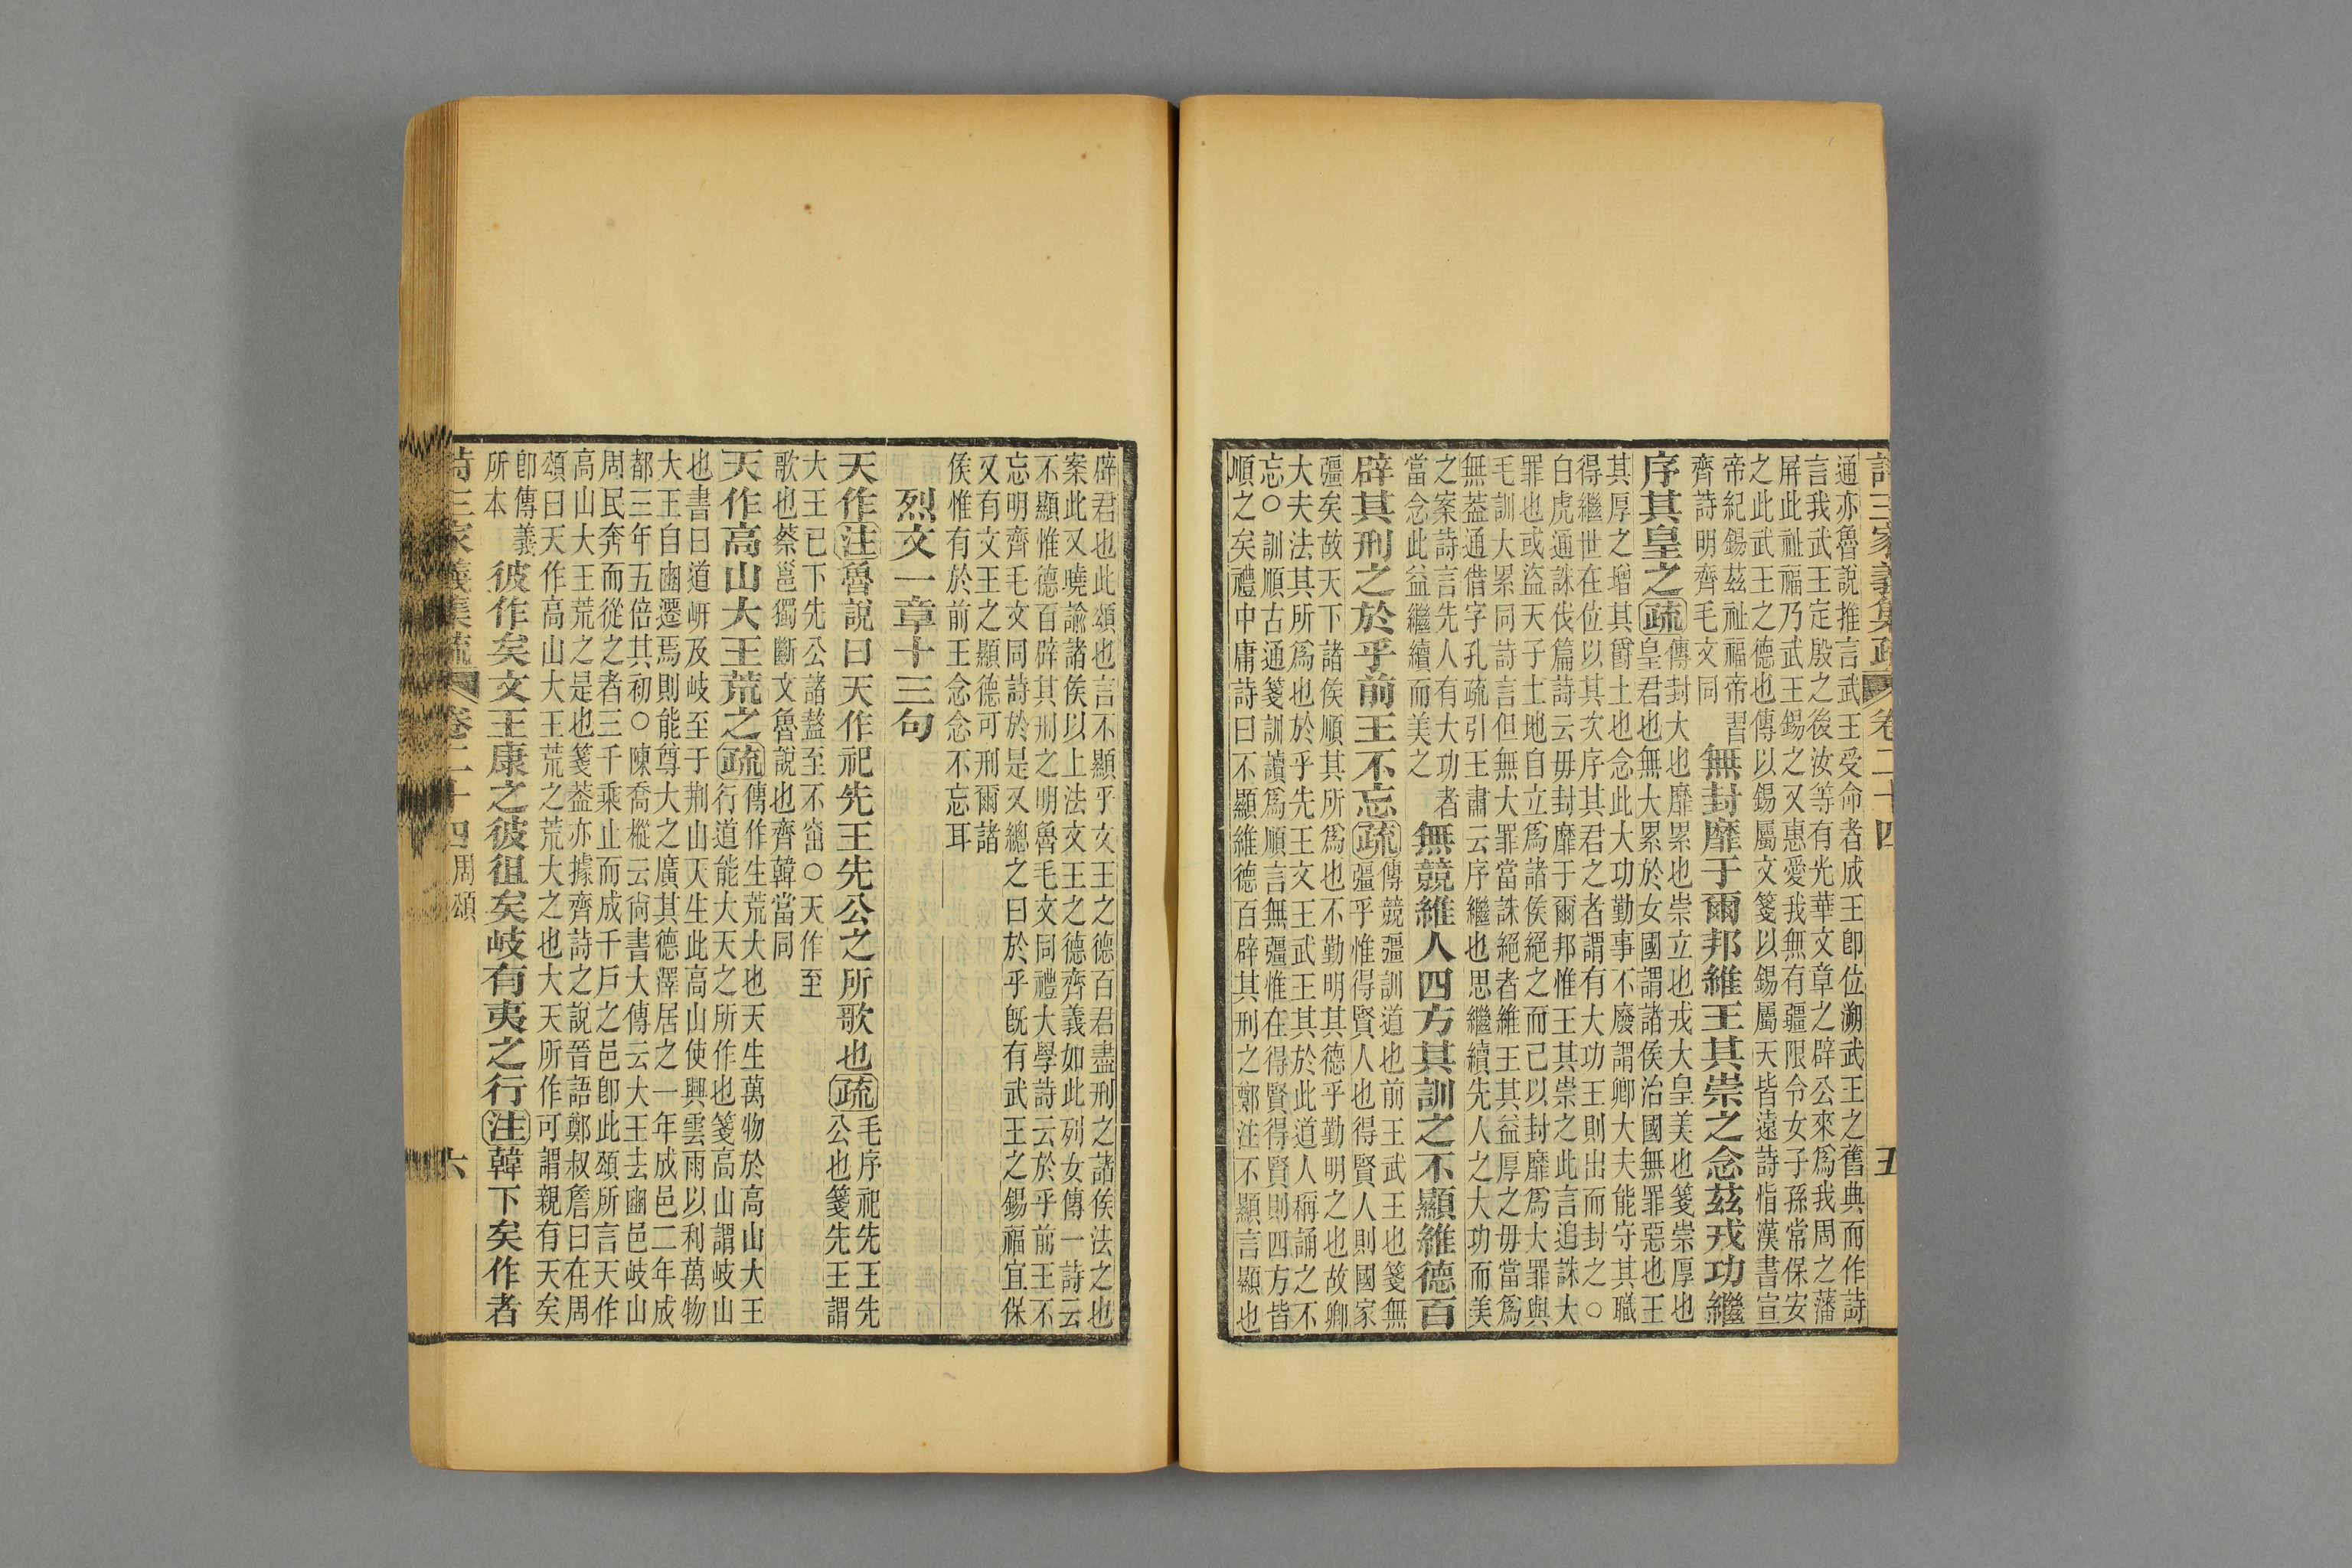 詩三家義集疏 卷二十四 五
通亦魯說推言武王受命者成王卽位溯武王之舊典而作詩
言我武王定殷之後汝等有光華文章之辟公來爲我周之藩
屏此祉福乃武王錫之又惠愛我無有疆限令女子孫常保安
之此武王之德也傳以錫屬文箋以錫屬天皆遠詩恉漢書宣
帝紀錫茲祉福帝習
齊詩明齊毛文同
無封靡于爾邦維王其崇之念茲戎功繼
序其皇之疏
傳封大也靡累也崇立也戎大皇美也箋崇厚也
皇君也無大累於女國謂諸侯治國無罪惡也王
其厚之增其爵土也念此大功勤事不廢謂卿大夫能守其職
得繼世在位以其次序其君之者謂有大功王則出而封之○
白虎通誅伐篇詩云毋封靡于爾邦惟王其崇之此言追誅大
罪也或盜天子土地自立爲諸侯絕之而已以封靡爲大罪與
毛訓大累同詩言但無大罪當誅絕者維王其益厚之毋當爲
無蓋通借字孔疏引王肅云序繼也思繼續先人之大功而美
之案詩言先人有大功者
當念此益繼續而美之
無競維人四方其訓之不顯維德百
辟其刑之於乎前王不忘疏
傳競彊訓道也前王武王也箋無
彊乎惟得賢人也得賢人則國家
彊矣故天下諸侯順其所爲也不勤明其德乎勤明之也故卿
大夫法其所爲也於乎先王文王武王其於此道人稱誦之不
忘○訓順古通箋訓讀爲順言無彊惟在得賢得賢則四方皆
順之矣禮中庸詩曰不顯維德百辟其刑之鄭注不顯言顯也
辟君也此頌也言不顯乎文王之德百君盡刑之諸侯法之也
案此又曉諭諸侯以上法文王之德齊義如此列女傳一詩云
不顯惟德百辟其刑之明魯毛文同禮大學詩云於乎前王不
忘明齊毛文同詩於是又總之曰於乎旣有武王之錫福宜保
又有文王之顯德可刑爾諸
侯惟有於前王念念不忘耳
烈文一章十三句
天作注魯說曰天作祀先王先公之所歌也疏
毛序祀先王先
公也箋先王謂
大王已下先公諸盩至不窋○天作至
歌也蔡邕獨斷文魯說也齊韓當同
天作高山大王荒之疏
傳作生荒大也天生萬物於高山大王
行道能大天之所作也箋高山謂岐山
也書曰道岍及岐至于荆山天生此高山使興雲雨以利萬物
大王自豳遷焉則能尊大之廣其德澤居之一年成邑二年成
都三年五倍其初○陳喬樅云尙書大傳云大王去豳邑岐山
周民奔而從之者三千乘止而成千戶之邑卽此頌所言天作
高山大王荒之是也箋葢亦據齊詩之說晉語鄭叔詹曰在周
頌曰天作高山大王荒之荒大之也大天所作可謂親有天矣
卽傳義
所本
彼作矣文王康之彼徂矣岐有夷之行注韓下矣作者
詩三家義集疏 卷二十四 周頌 六